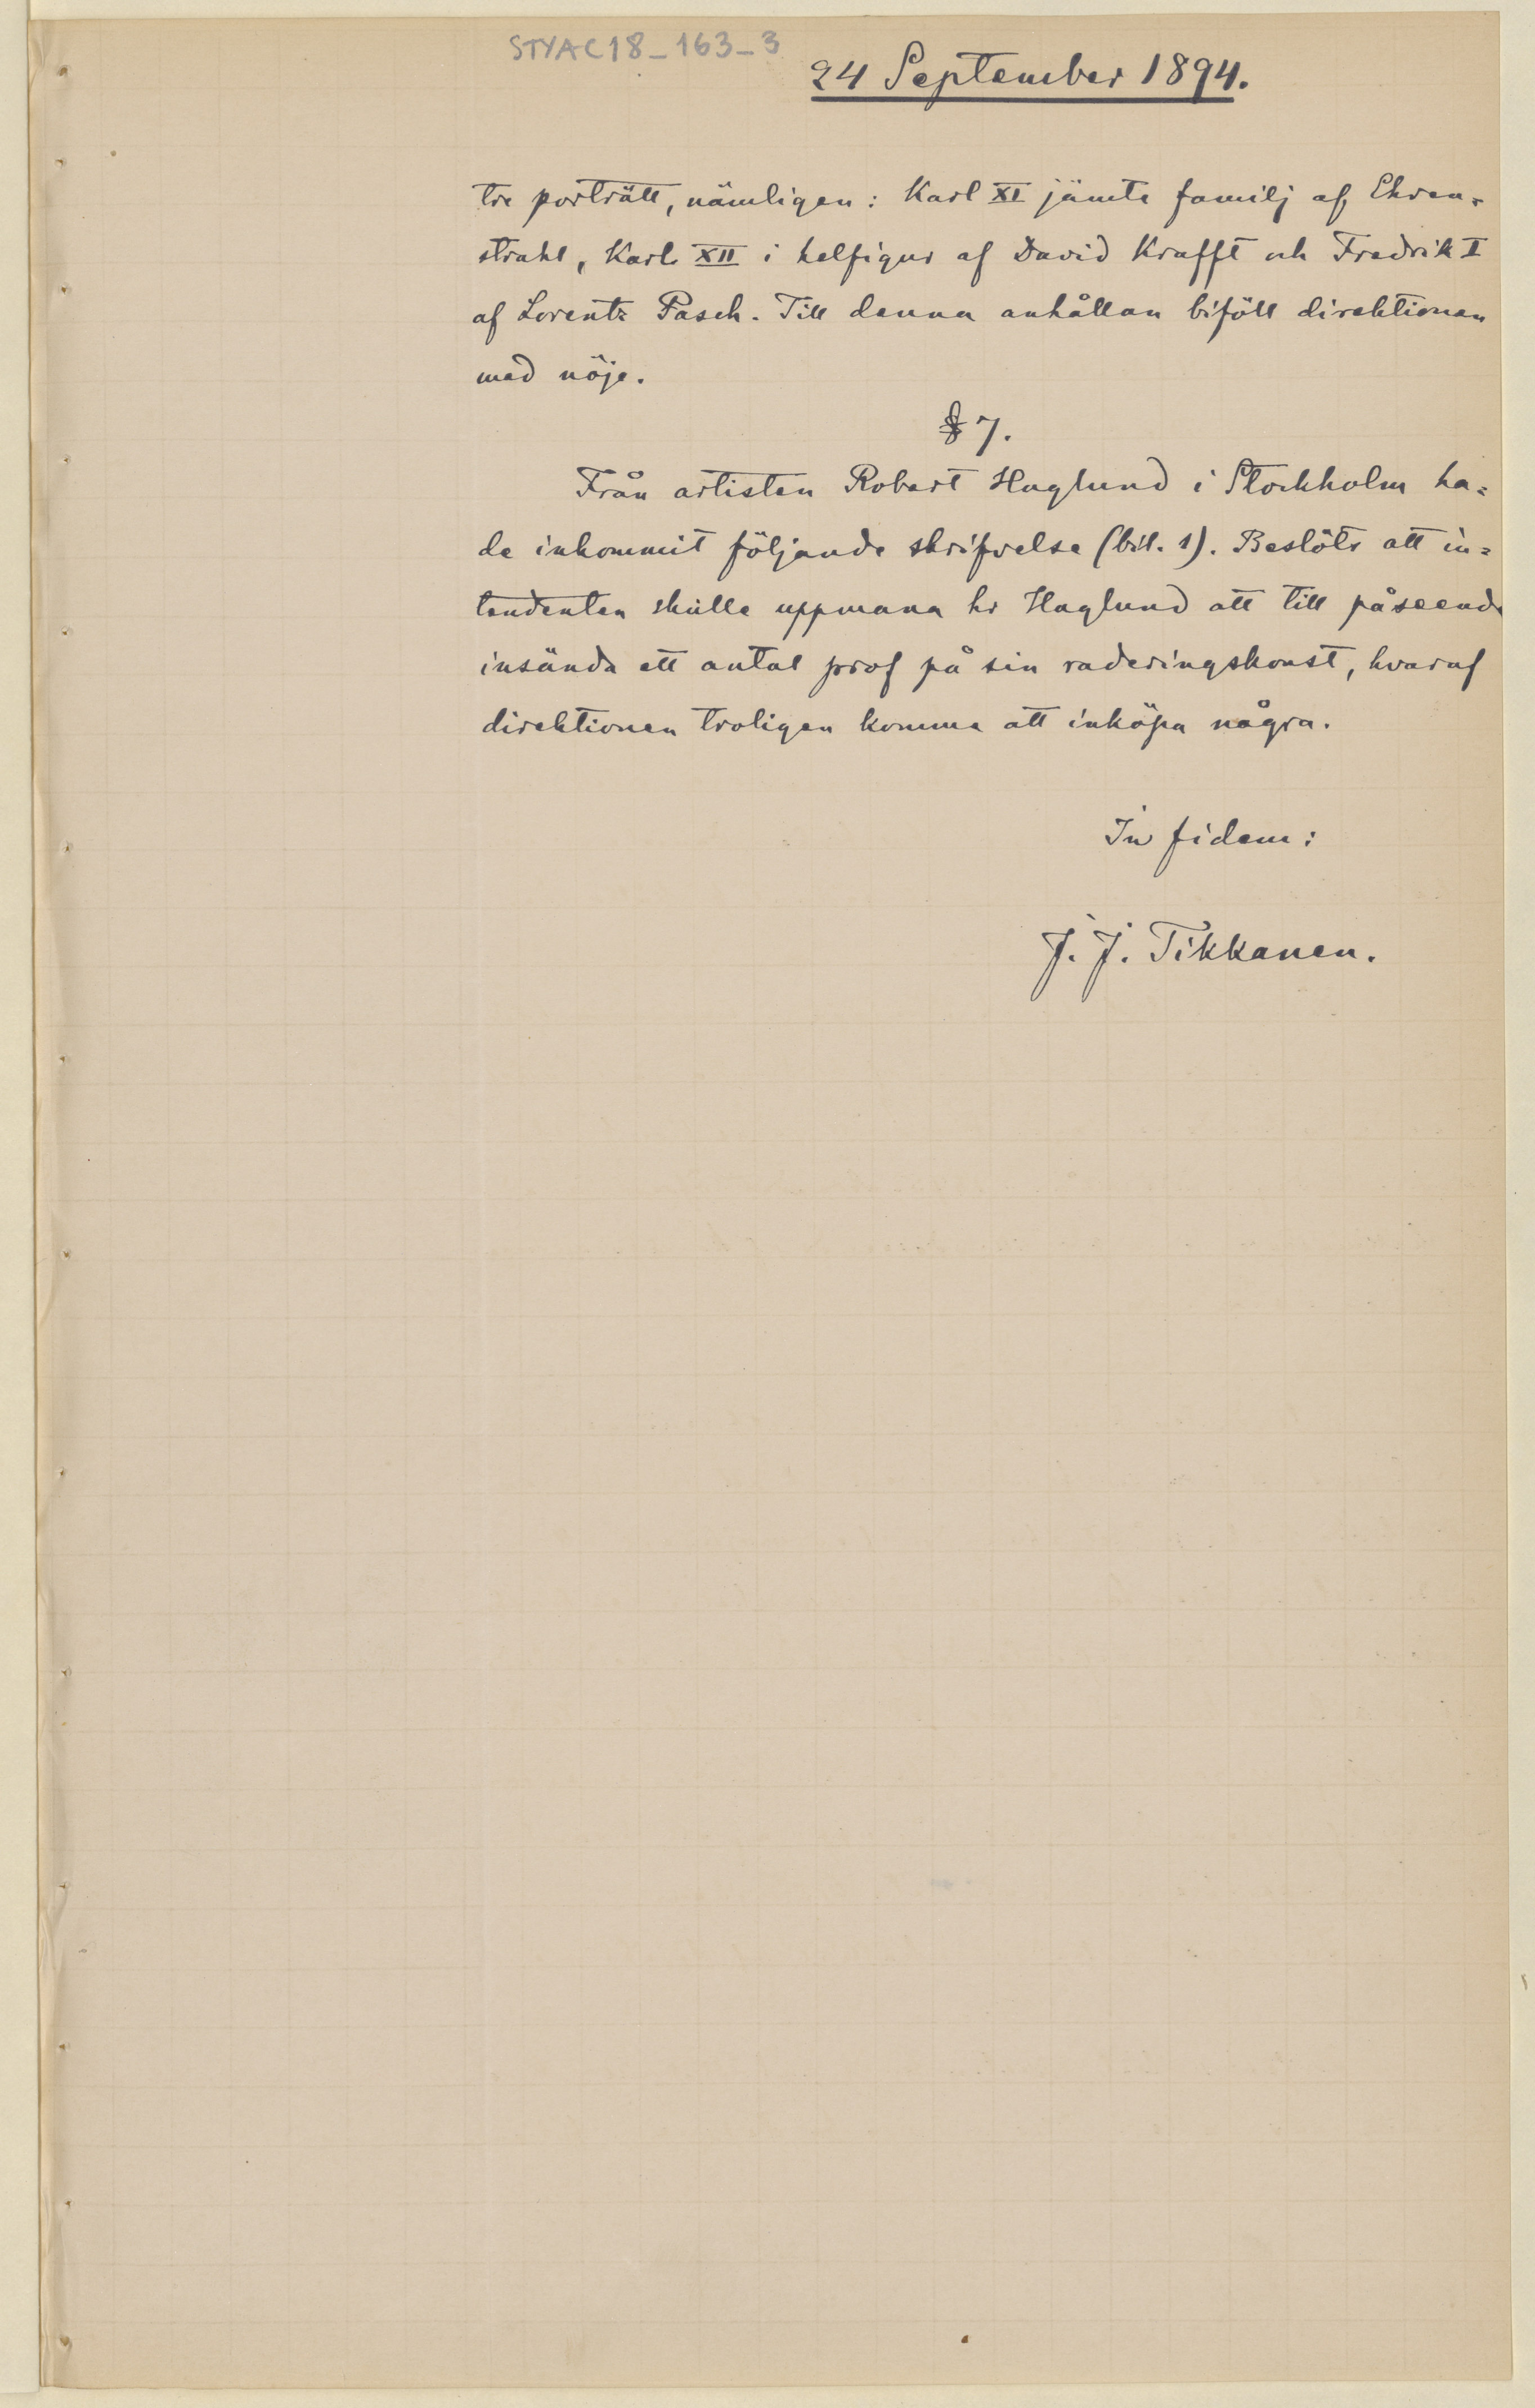 STYAC18_163_3
24 September 1894.
tre porträtt, nämligen: Karl XI jämte familj af Ehren-
strahl, Karl XII i helfigur af David Krafft och Fredrik I
af Lorentz Pasch. Till denna anhållan biföll direktionen
med nöje.
§ 7.
Från artisten Robert Haglund i Stockholm ha=
de inkommit följande skrifvelse (bil. 1). Beslöts att in=
tendenten skulle uppmana hr Haglund att till påseende
insända ett antal prof på sin raderingskonst, hvaraf
direktionen troligen komme att inköpa några.
In fidem:
J. J. Tikkanen.